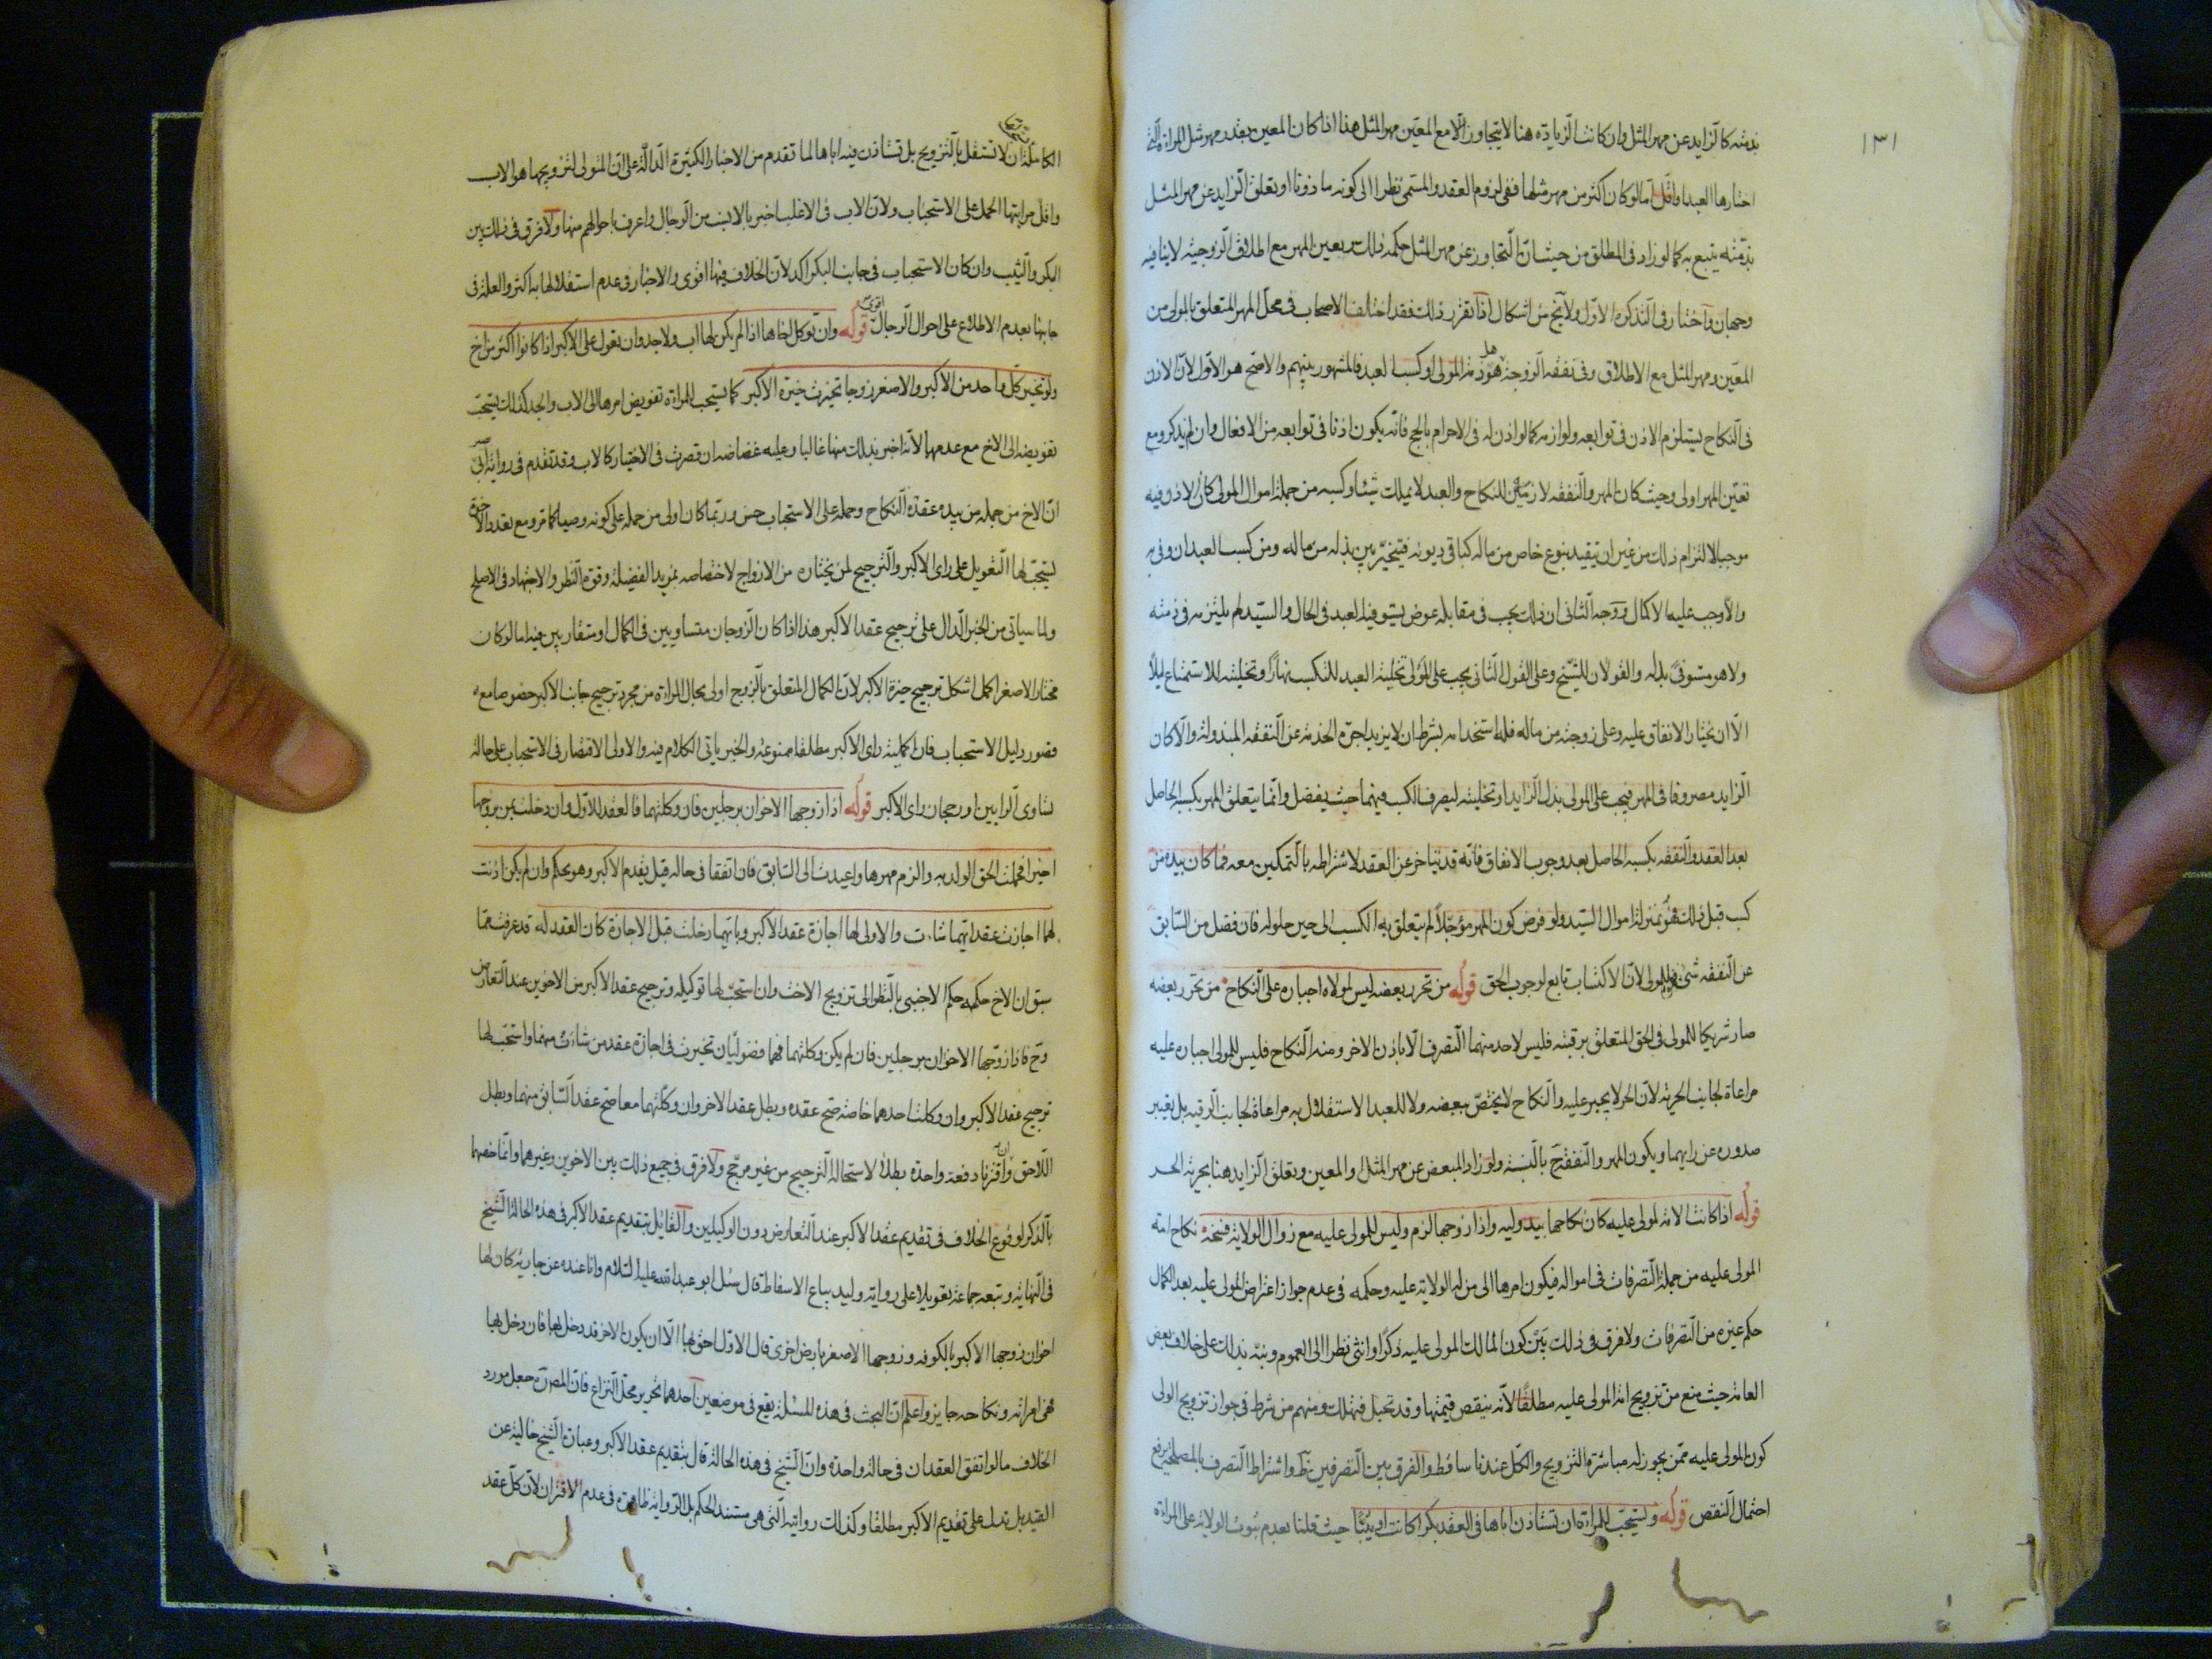 ١٣١
بذمته كالزايد عن مهر المثل وان كانت الزيادة هنا لا يتجاوز الا مع المعين مهر المثل هذا اذا كان المعين بقدر مهر مثل المراة التى
اختارها العبد او اقل اما لو كان اكثر من مهر مثلها ففى لزوم العقد والمسمى نظرا الى كونه ماذونا او تعلق الزايد عن مهر المثل
بذمته يتبع به كما لو زاد فى المطلق من حيث ان التجاوز عن مهر المثل حكمه ذلك وتعين المهر مع اطلاق الزوجية لا ينافيه
وجهان واختار فى التذكرة الاول ولا يخ من اشكال اذا تقرر ذلك فقد اختلف الاصحاب فى محل المهر المتعلق بالمولى من
المعين ومهر المثل مع الاطلاق وفى نفقة الزوجة هل هو ذمة المولى او كسب العبد فالمشهور بينهم والاصح هو الاول لان الاذن
فى النكاح يستلزم الاذن فى توابعه ولوازمه كما لو اذن له فى الاحرام بالحج فانه يكون اذنا فى توابعه من الافعال وان لم يذكر ومع
تعين المهر اولى وحيث كان المهر والنفقة لازمين للنكاح والعبد لا يملك شيئا وكسبه من جملة اموال المولى كان الاذن فيه
موجبا لالتزام ذلك من غير ان يتقيد بنوع خاص من ماله كباقى ديونه فيتخير بين بذله من ماله ومن كسب العبد ان وفى به
والا وجب عليه الاكمال ووجه الثانى ان ذلك يجب فى مقابله عوض يستوفيه العبد فى الحال والسيد لم يلتزمه فى ذمته
ولا هو مستوف بذله والقولان للشيخ وعلى القول الثانى يجب على المولى تخلية العبد للتكسب نهارا وتخليته للاستمتاع ليلا
الا ان يختار الانفاق عليه وعلى زوجته من ماله فله استخدامه بشرط ان لا يزيد اجرة الخدمة عن النفقة المبذولة والا كان
الزايد مصروفا فى المهر فيجب على المولى بذل الزايد او تخليته ليصرف الكسب فيهما حيث يفضل وانما يتعلق المهر بكسبه الحاصل
بعد العقد والنفقة بكسبه الحاصل بعد وجوب الانفاق فانه قد يتاخر عن العقد لاشتراطه بالتمكين معه فما كان بيده من
كسب قبل ذلك فهو بمنزلة اموال السيد ولو فرض كون المهر مؤجلا لم يتعلق به الكسب الى حين حلوله فان فضل من السابق
عن النفقة شئ فهو للمولى لان الاكتساب تابع لوجوب الحق قوله من تحرر بعضه ليس لمولاه اجباره على النكاح من تحرر بعضه
صار شريكا للمولى فى الحق المتعلق برقبته فليس لاحد منهما التصرف الا باذن الاخر ومنه النكاح فليس للمولى اجباره عليه
مراعاة لجانب الحرية لان الحر لا يجبر عليه والنكاح لا يختص ببعضه ولا للعبد الاستقلال به مراعاة لجانب الرقية بل يعتبر
صدوره عن رايهما ويكون المهر والنفقة ح بالنسبة ولو زاد المبعض عن مهر المثل او المعين وتعلق الزايد هنا بجزئه الحر
قوله اذا كانت الامة لمولى عليه كان نكاحها بيد وليه واذا زوجها لزم وليس للمولى عليه مع زوال الولاية فسخه نكاح امة
المولى عليه من جملة التصرفات فى امواله فيكون امرها الى من له الولاية عليه وحكمه فى عدم جواز اعتراض المولى عليه بعد الكمال
حكم غيره من التصرفات ولا فرق فى ذلك بين كون المالك المولى عليه ذكرا او انثى نظرا الى العموم ونبه بذلك على خلاف بعض
العامة حيث منع من تزويج امة المولى عليه مطلقا لانه ينقص قيمتها وقد تحبل فتهلك ومنهم من شرط فى جواز تزويج الولى
كون المولى عليه ممن يجوز له مباشرة التزويج والكل عندنا ساقط والفرق بين التصرفين ظ واشتراط التصرف بالمصلحة يرفع
احتمال النقص قوله ويستحب للمراة ان تستاذن اباها فى العقد بكرا كانت او ثيبا حيث قلنا بعدم ثبوت الولاية على المراة
الكاملة ان لا تستقل بالتزويج بل تستاذن فيه اباها لما تقدم من الاخبار الكثيرة الدالة على ان المتولى لتزويجها هو الاب
واقل مراتبها الحمل على الاستحباب ولان الاب فى الاغلب اخبر بالانسب من الرجال واعرف باحوالهم منها ولا فرق فى ذلك بين
البكر والثيب وان كان الاستحباب فى جانب البكر اكد لان الخلاف فيها اقوى والاخبار فى عدم استقلالها به اكثر والعلة فى
جانبها بعدم الاطلاع على احوال الرجال اقوى قوله وان توكل اخاها اذا لم يكن لها اب ولا جد وان تعول على الاكبر اذا كانوا اكثر من اخ
ولو تخير كل واحد من الاكبر والاصغر زوجا تخيرت خيرة الاكبر كما يستحب للمراة تفويض امرها الى الاب والجد كذلك يستحب
تفويضه الى الاخ مع عدمهما لانه اخبر بذلك منها غالبا وعليه غضاضة ان قصرت فى الاختيار كالاب وقد تقدم فى رواية ابى بصير
ان الاخ من جملة من بيده عقدة النكاح وحمله على الاستحباب حسن وربما كان اولى من حمله على كونه وصيا كما مر ومع تعدد الاخوة
يستحب لها التعويل على راى الاكبر والترجيح لمن يختاره من الازواج لاختصاصه بمزيد الفضيلة وقوة النظر والاجتهاد فى الاصلح
ولما سياتى من الخبر الدال على ترجيح عقد الاكبر هذا اذا كان الزوجان متساويين فى الكمال او متقاربين فيه اما لو كان
مختار الاصغر اكمل اشكل ترجيح خيرة الاكبر لان الكمال المتعلق بالزوج اولى بحال المراة من مجرد ترجيح جانب الاكبر خصوصا مع
قصور دليل الاستحباب فان اكملية راى الاكبر مطلقا ممنوعة والخبر ياتى الكلام فيه والاولى الاقتصار فى الاستحباب على حالة
تساوى الرايين او رجحان راى الاكبر قوله اذا زوجها الاخوان برجلين فان وكلتهما فالعقد للاول وان دخلت بمن تزوجها
اخيرا فحملت الحق الولد به والزم مهرها واعيدت الى السابق فان اتفقا فى حالة قيل يقدم الاكبر وهو تحكم وان لم يكن اذنت
لهما اجازت عقد ايهما شاءت والاولى لها اجازة عقد الاكبر وبايهما دخلت قبل الاجازة كان العقد له قد عرفت مما
سبق ان الاخ حكمه حكم الاجنبى بالنظر الى تزويج الاخت وان استحب لها توكيله وترجيح عقد الاكبر من الاخوين عند التعارض
وح فاذا زوجها الاخوان برجلين فان لم يكن وكلتهما فهما فضوليان تخيرت فى اجازة عقد من شاءت منهما واستحب لها
ترجيح عقد الاكبر وان وكلت احدهما خاصة صح عقده وبطل عقد الاخر وان وكلتهما معا صح عقد السابق منهما وبطل
اللاحق وان اقترنا دفعة واحدة بطلا لاستحالة الترجيح من غير مرجح ولا فرق فى جميع ذلك بين الاخوين وغيرهما وانما خصهما
بالذكر لوقوع الخلاف فى تقديم عقد الاكبر عند التعارض دون الوكيلين والقائل بتقديم عقد الاكبر فى هذه الحالة الشيخ
فى النهاية وتبعه جماعة تعويلا على رواية وليد بياع الاسفاط قال سئل ابو عبد الله عليه السلام وانا عنده عن جارية كان لها
اخوان زوجها الاكبر بالكوفة وزوجها الاصغر بارض اخرى قال الاول احق بها الا ان يكون الاخر قد دخل بها فان دخل بها
فهى امراته ونكاحه جايز واعلم ان البحث فى هذه المسئلة يقع فى موضعين احدهما تحرير محل النزاع فان المصنف جعل مورد
الخلاف ما لو اتفق العقدان فى حالة واحدة وان الشيخ فى هذه الحالة قال بتقديم عقد الاكبر وعبارة الشيخ خالية عن
القيد بل تدل على تقديم الاكبر مطلقا وكذلك روايته التى هى مستند الحكم بل الرواية ظاهرة فى عدم الاقتران لان كل عقد